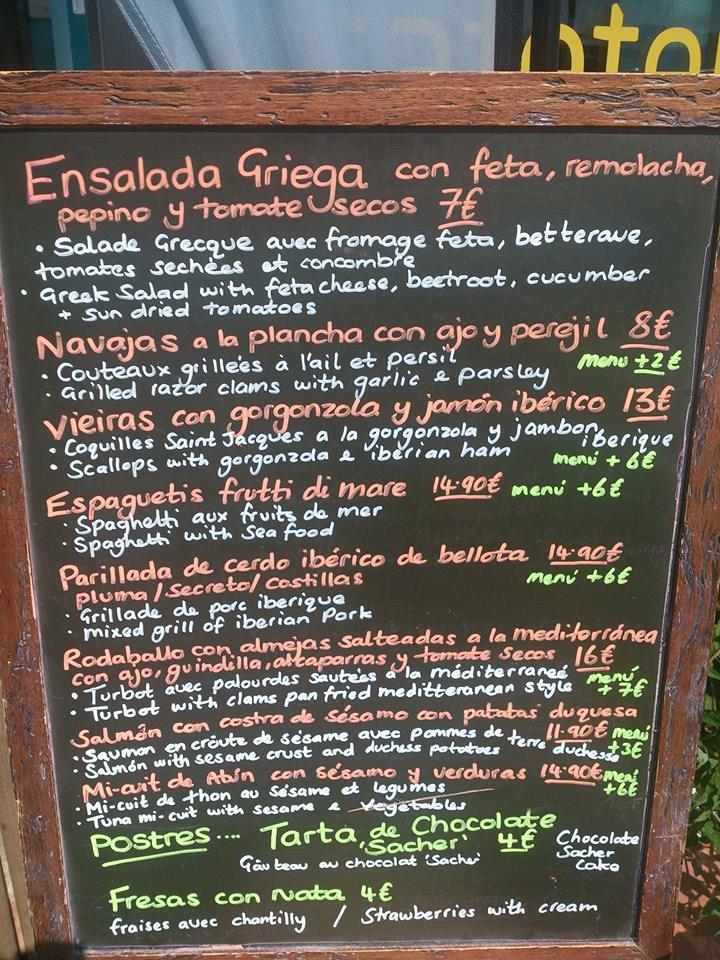 Ensalada Griega con feta, remolacha,
pepino y tomate secos 7€
• Salade Grecque avec fromage feta, betterave,
tomates sechées et concombre
• Greek Salad with feta cheese, beetroot, cucumber
+ sun dried tomatoes
Navajas a la plancha con ajo y perejil 8€
• Couteaux grilleés à l'ail et persil menu +2€
• Grilled razor clams with garlic e parsley
Vieiras con gorgonzola y jamón ibérico 13€
• Coquilles Saint Jacques a la gorgonzola y jambon iberique
• Scallops with gorgonzola e iberian ham menú + 6€
Espaguetis frutti di mare 14.90€ menú +6€
• Spaghetti aux fruits de mer
• Spaghetti with sea food
Parillada de cerdo ibérico de bellota 14.90€
pluma/secreto/costillas menú +6€
• Grillade de porc iberique
• mixed grill of iberian Pork
Rodaballo con almejas salteadas a la mediterránea
con ajo, guindilla, alcaparras y tomate secos 16€
• Turbot avec palourdes sauteés a la méditerraneé menú
• Turbot with clams pan fried meditteranean style + 7€
Salmón con costra de sésamo con patatas duquesa
• Saumon en croûte de sésame avec pommes de terre duchesse 11.90€ menú
• Salmón with sesame crust and duchess potatoes +3€
Mi-cuit de Atún con sésamo y verduras 14.90€ menú
• Mi-cuit de thon au sésame et legumes +6€
• Tuna mi-cuit with sesame e vegetables
Postres.... Tarta de Chocolate
'Sacher' 4€ Chocolate Sacher Cake
Gâuteau au chocolat 'Sacher'
Fresas con nata 4€
fraises avec chantilly / Strawberries with cream